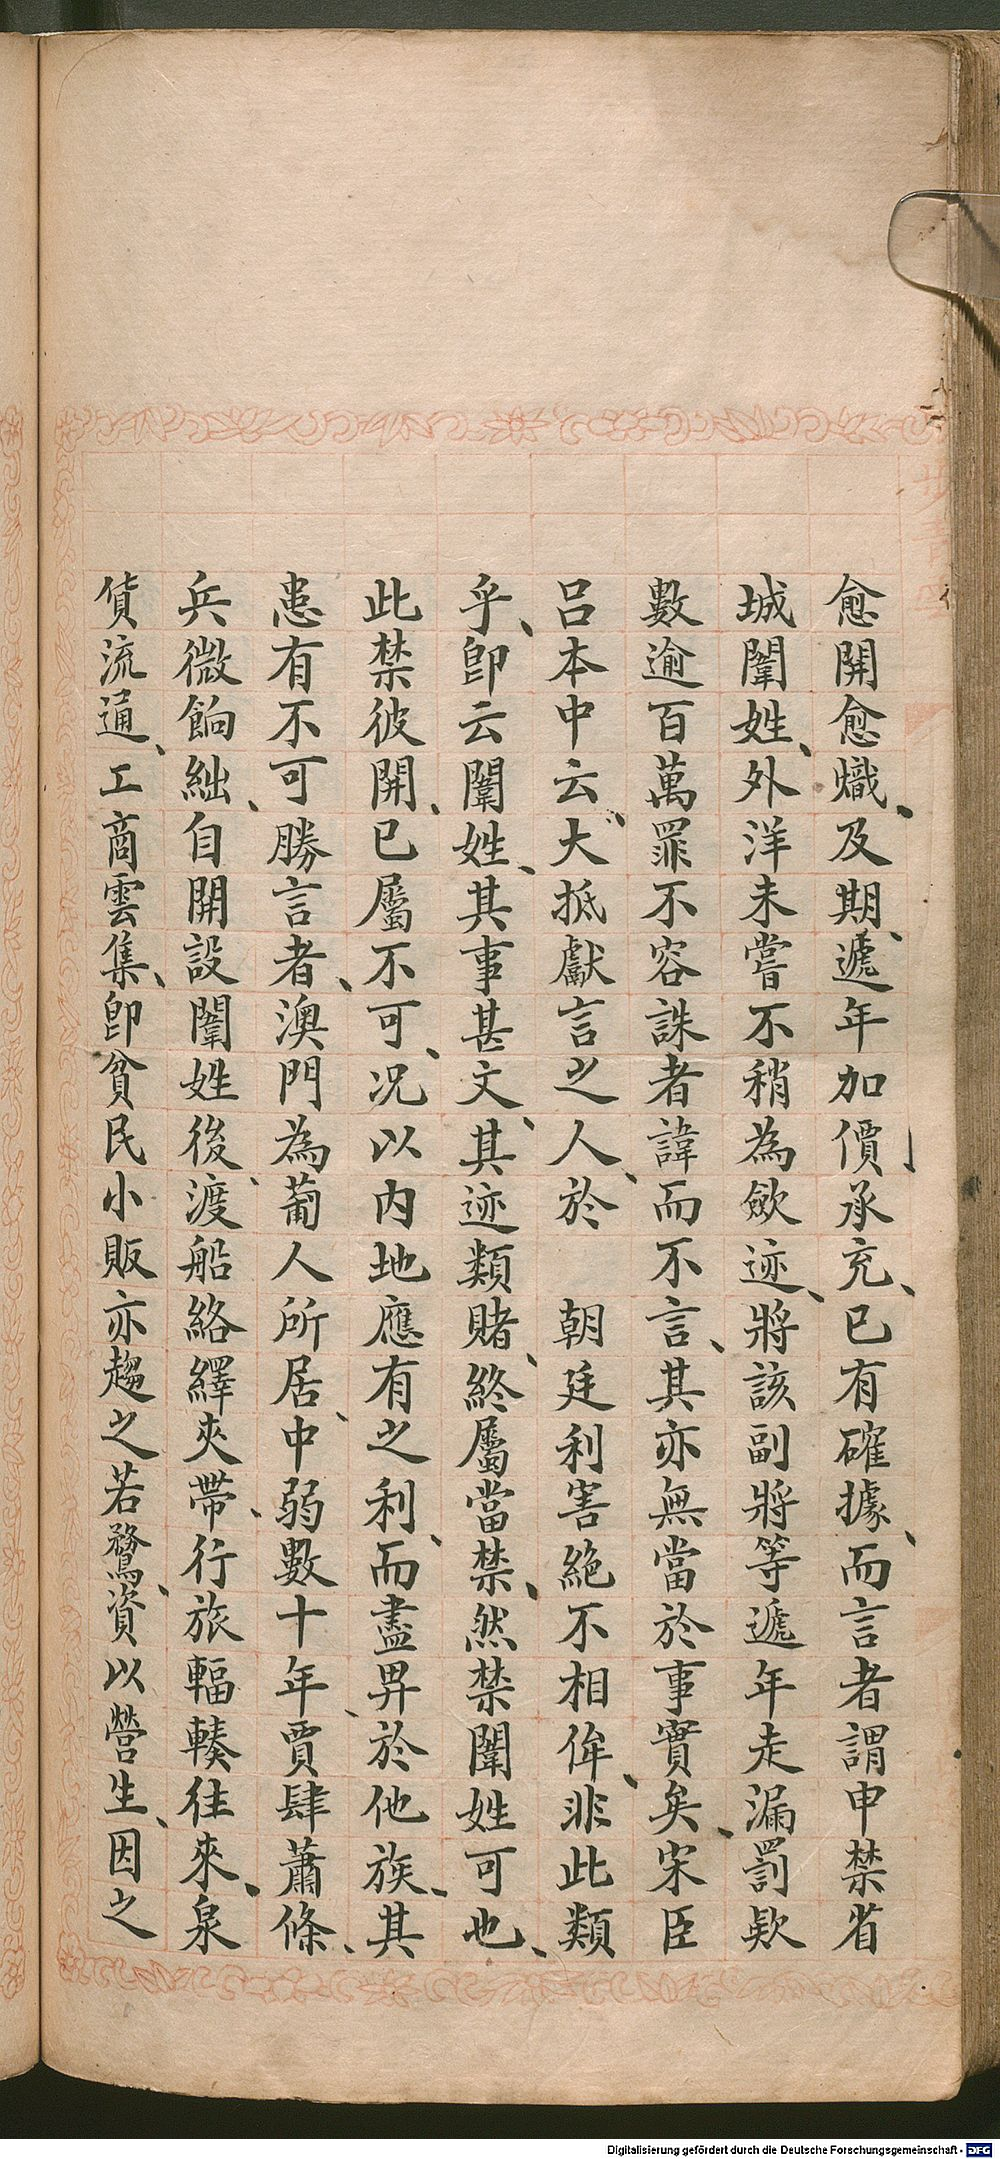 愈開愈熾、及期、遞年加價承充、已有確據、而言者謂申禁省
城闈姓、外洋未嘗不稍為斂迹、將該副將等遞年走漏罰欵
數逾百萬罪不容誅者諱而不言、其亦無當於事實矣、宋臣
呂本中云、大抵獻言之人、於　朝廷利害絕不相侔、非此類
乎、卽云闈姓、其事甚文、其迹類賭、終屬當禁、然禁闈姓可也、
此禁彼開、已屬不可、况以內地應有之利、而盡畀於他族、其
患有不可勝言者、澳門為葡人所居、中弱數十年、賈肆蕭條、
兵微餉絀、自開設闈姓後、渡船絡繹夾帶、行旅輻輳往來、泉
貨流通、工商雲集、卽貧民小販亦趨之若鶩、資以營生、因之
Digitalisierung gefördert durch die Deutsche Forschungsgemeinschaft - DFG